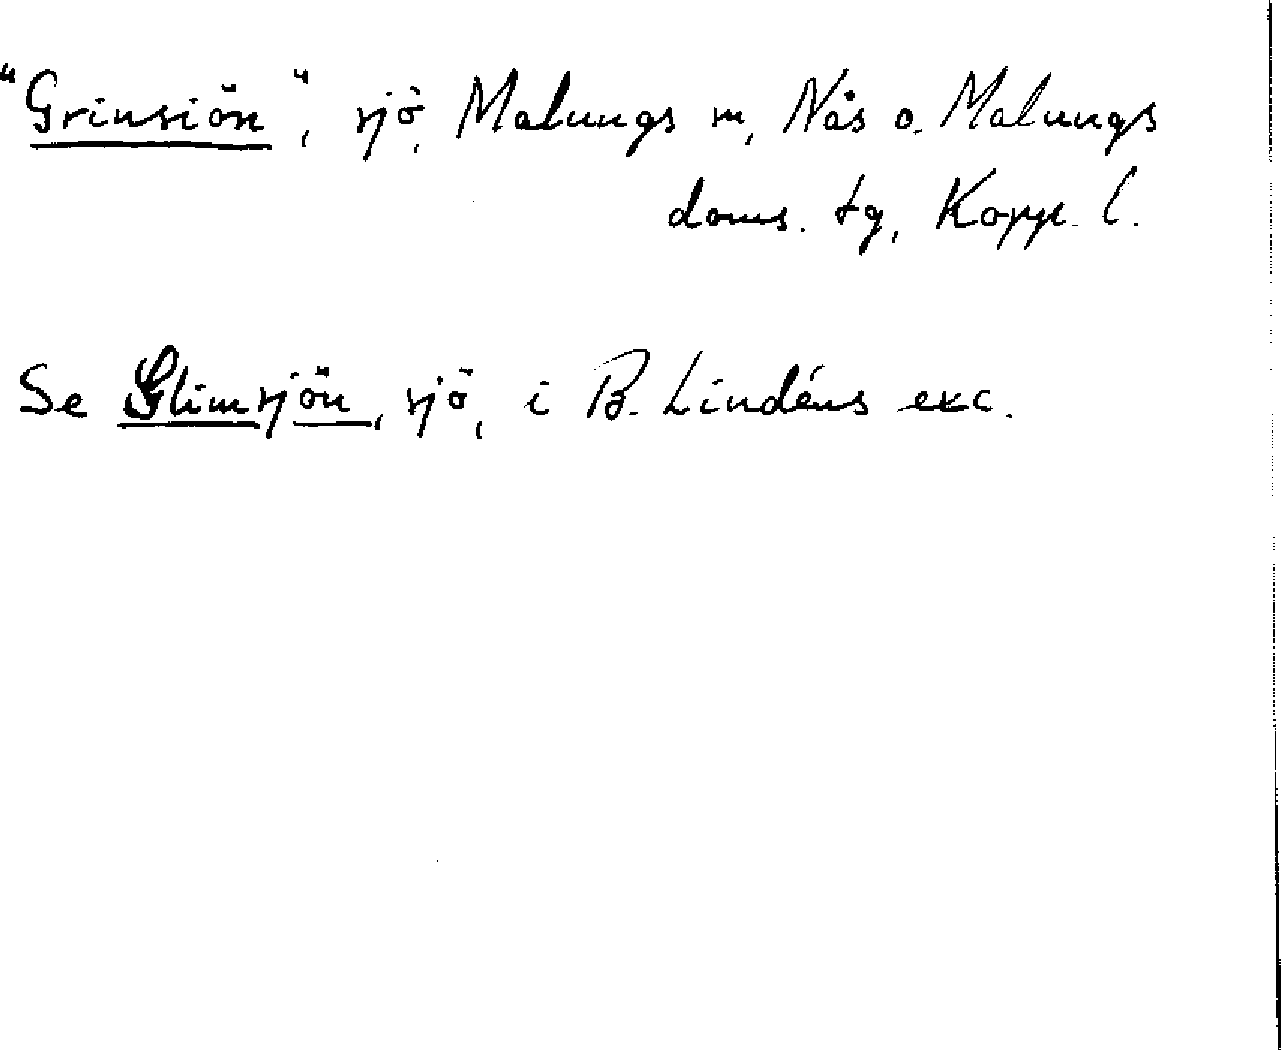 "Grinsiön", sjö, Malungs m, Nås o. Malungs
doms. tg, Kopp. l.
Se Glimsjön, sjö, i B. Lindéns exc.